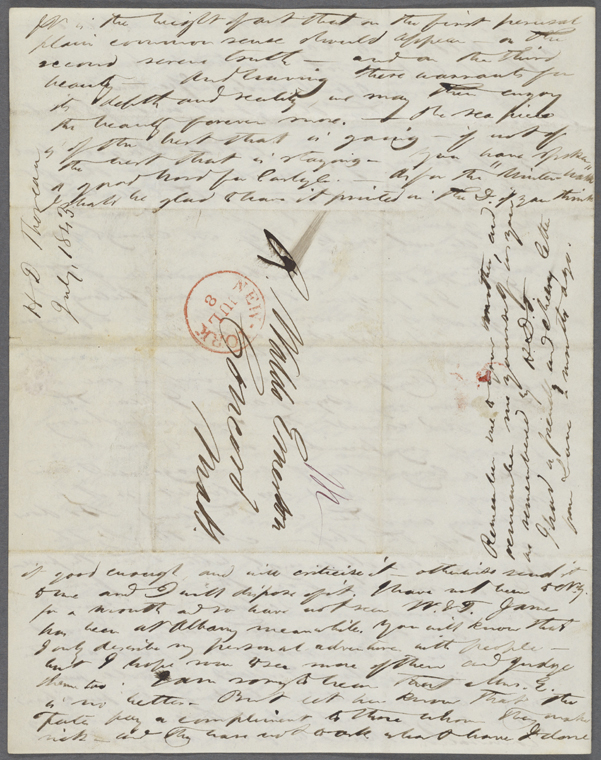 It is the height of art that on the first perusal
plain common sense should appear - on the
second severe truth - and on the third
beauty - and having these warrants for
its depth and reality, we may then enjoy
the beauty forever more. - The sea piece
is of the best that is going - if not of
the best that is staying - You have spoken
a good word for Carlyle. - As for the Winter's Walk
I shall be glad to have it printed in the D. if you think
H D Thoreau
July, 1843
NEW-YORK
JUL
8
R. Waldo Emerson
Concord
Mass.
Remember me to your mother, and
remember me yourself as you
are remembered by H.D.T.
I had a friendly and cheery letter
from Lane a month ago.
it good enough, and will criticise it - otherwise send it
to me and I will dispose of it. I have not been to N.Y.
for a month and so have not seen W. & T. James
has been at Albany meanwhile. You will know that
I only describe my personal adventures with people -
but I hope soon to see more of them and judge
them too. I am sorry to learn that Mrs. E.
is no better. But let her know that the
Fates pay a compliment to those whom they make
sick - and they have not to ask, what have I done